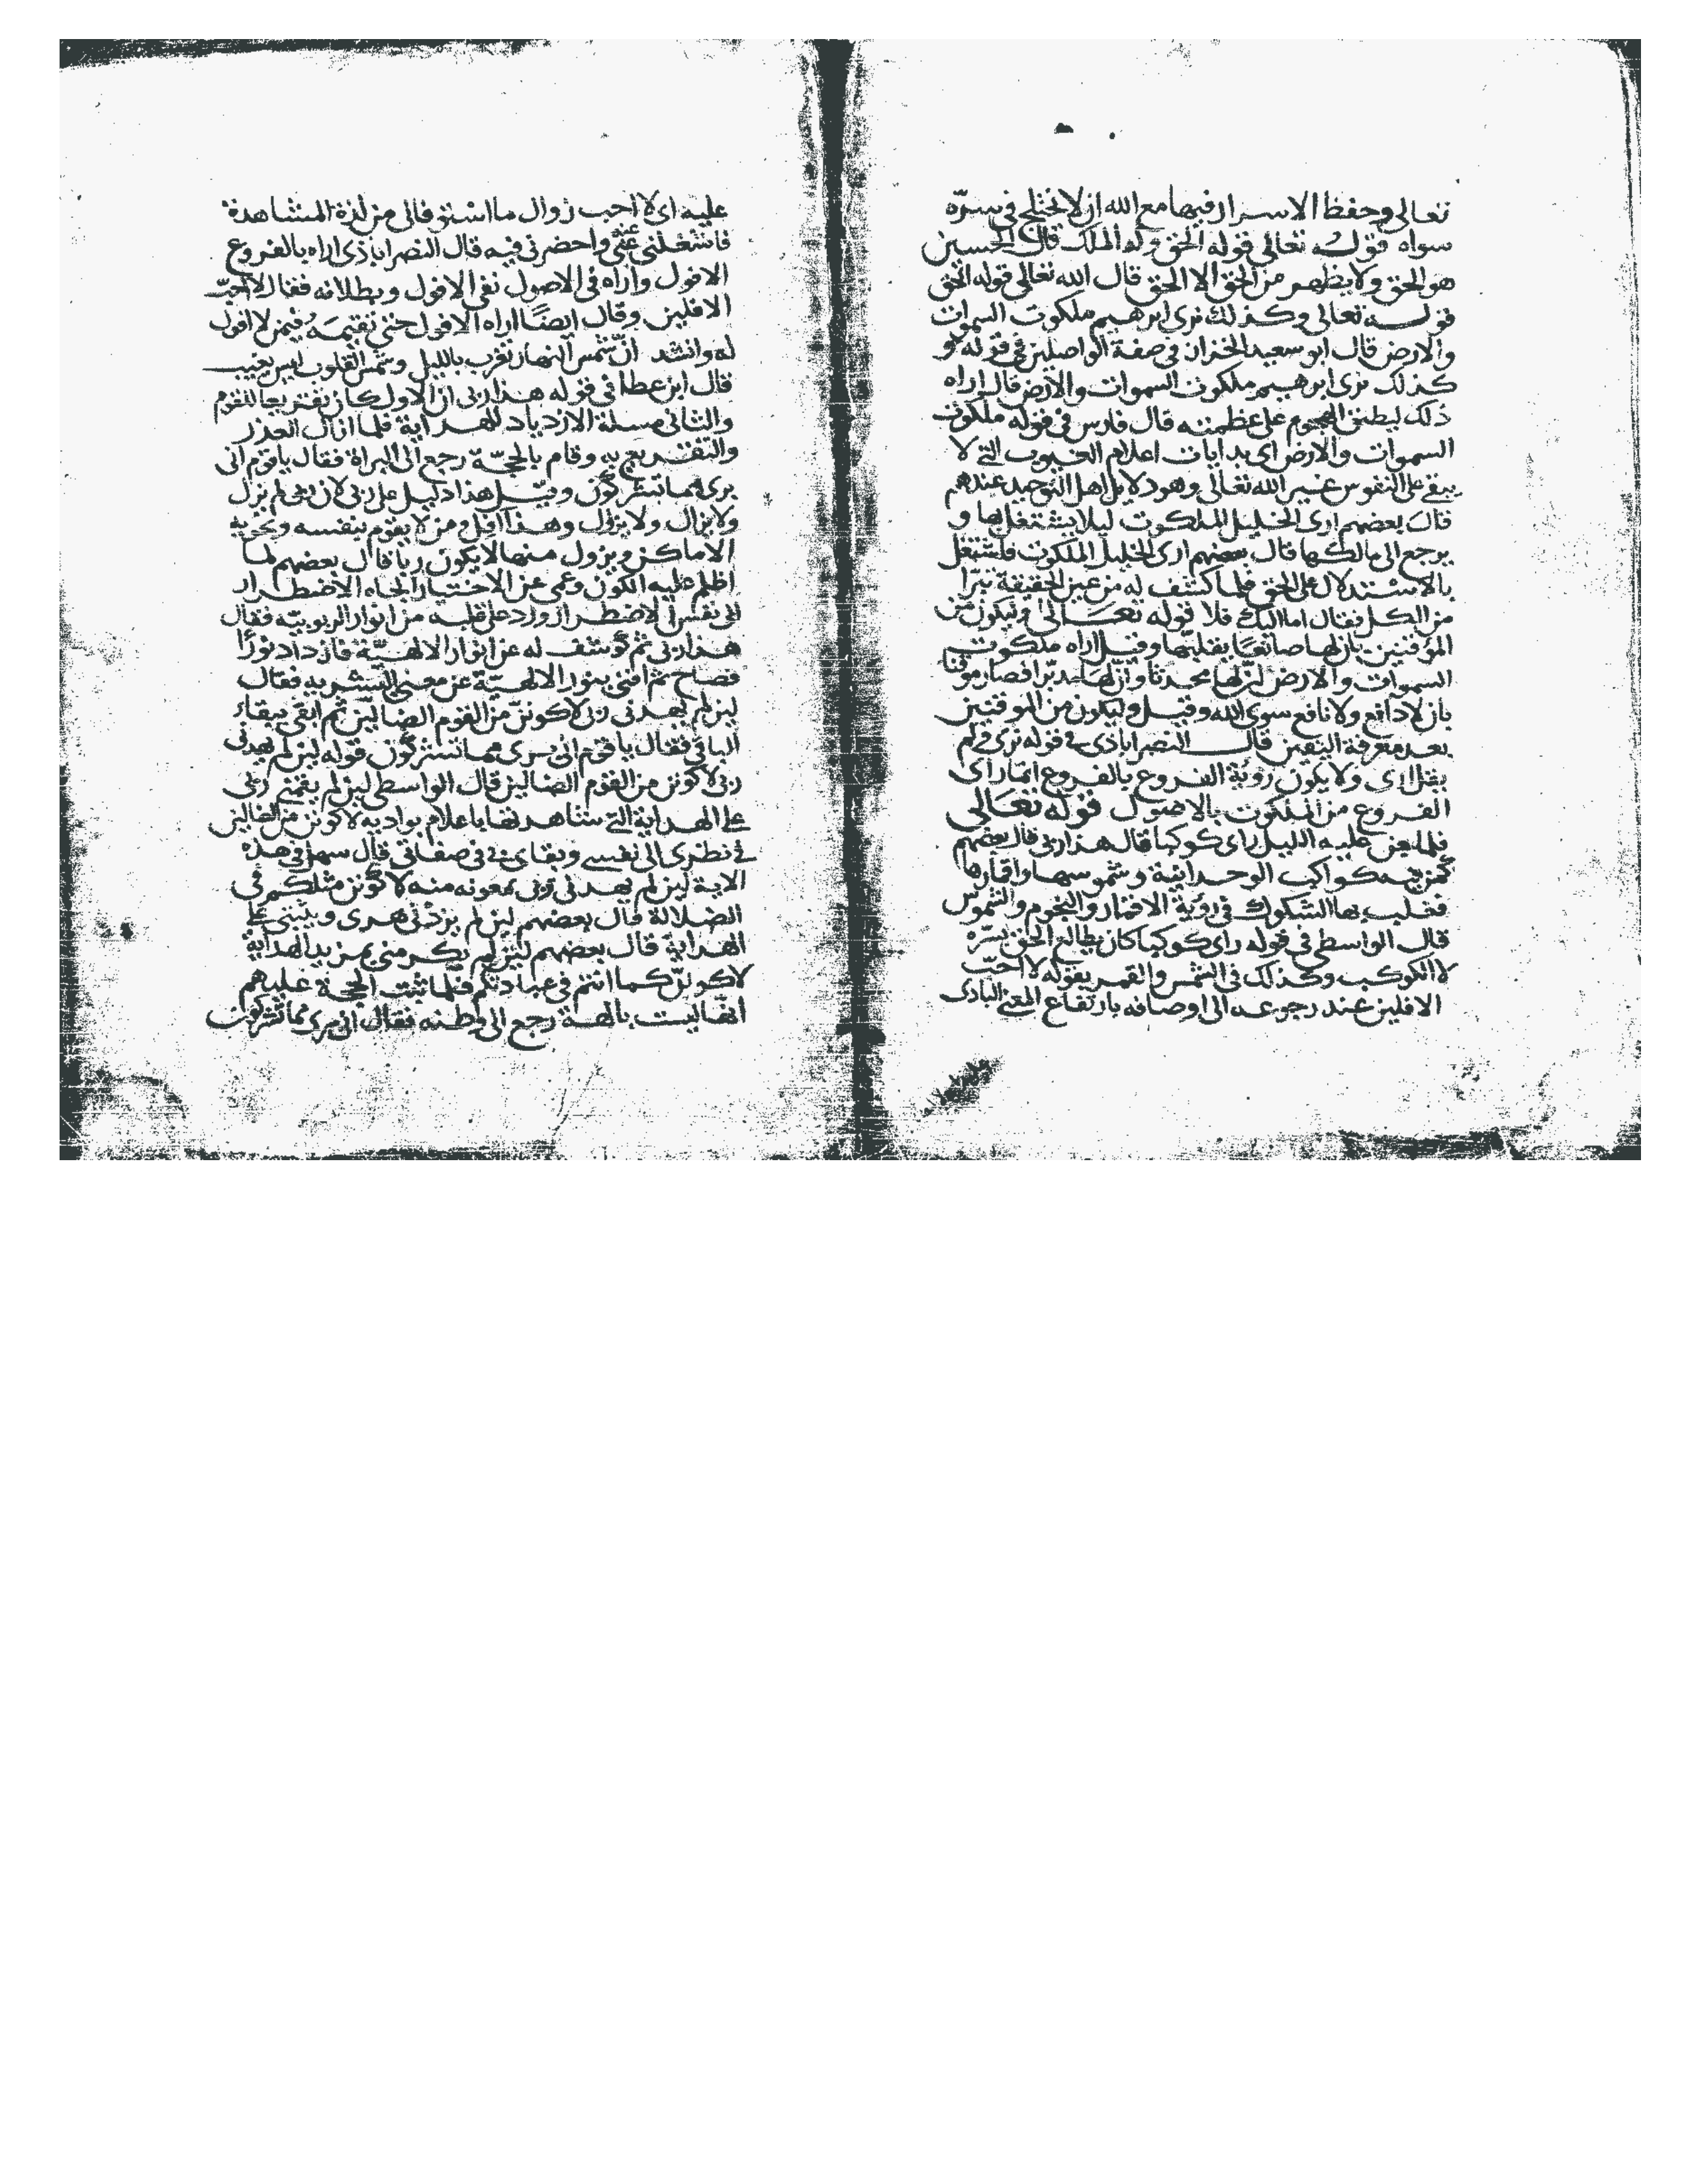 تعالى وحفظ الاسرار فيها مع الله ان لا يختلج في سره
سواه قوله تعالى قوله الحق وله الملك قال الحسين
هو الحق ولا يظهر من الحق الا الحق قال الله تعالى قوله الحق
قوله تعالى وكذلك نرى ابرهيم ملكوت السموات
والارض قال ابو سعيد الخراز في صفة الواصلين في قوله و
كذلك نرى ابرهيم ملكوت السموات والارض قال اراه
ذلك ليطيق الهجوم على عظمته قال فارس في قوله ملكوت
السموات والارض اى بدايات اعلام الغيوب التي لا
يبقى على النفوس غير الله تعالى وهو دلايل اهل التوحيد عندهم
قال بعضهم ارى الخليل الملكوت ليلا يشتغل بها و
يرجع الى مالكها قال بعضهم ارى الخليل الملكوت فاشتغل
بالاستدلال على الحق فلما كشف له من عين الحقيقة تبرا
من الكل فقال اما اليك فلا قوله تعالى وليكون من
الموقنين بان لها صانعا يقلبها وقيل اراه ملكوت
السموات والارض ان لها محدثا وان لها مدبرا فصار موقنا
بان لا دافع ولا نافع سوى الله وقيل وليكون من الموقنين
بعد معرفة اليقين قال النصراباذى في قوله نرى ولم
يقل ارى ولا يكون رؤية الفروع بالفروع انما راى
الفروع من الملكوت بالاصول قوله تعالى
فلما جن عليه الليل راى كوكبا قال هذا ربى قال بعضهم
كواكب الوحدانية وشموسها واقمارها
فغلب بها الشكوك في رؤية الاقمار والنجوم والشموس
قال الواسطى في قوله راى كوكبا كان يطالع الحق بسره
لا الكوكب وكذلك في الشمس والقمر بقوله لا احب
الافلين عند رجوعه الى اوصافه بارتفاع المعنى البادى
عليه اى لا احب زوال ما استوفانى من لذة المشاهدة
فاشغلنى عنى واحضرنى فيه قال النصراباذى اراه بالفروع
الافول واراه في الاصول نفى الافول وبطلانه فقال لا احب
الافلين وقال ايضا اراه الافول حتى تقيمه فيمن لا افول
له وانشد ان شمس النهار تغرب بالليل وشمس القلوب ليس يغيب
قال ابن عطا في قوله هذا ربى ان الاول كان تقريعا للقوم
والثانى مسلة الازدياد للهداية فلما ازال العذر
والتقريع به وقام بالحجة رجع الى البراة فقال ياقوم انى
برى مما تشركون وقيل هذا دليل على ربى لان ربى لم يزل
ولا يزال ولا يزول وهذا افل ومن لا يقوم بنفسه وتحويه
الاماكن ويزول منها لا يكون ربا قال بعضهم لما
اظلم عليه الكون وعمى عن الاختيار الجاه الاضطرار
الى نفس الاضطرار ورد على قلبه من انوار الربوبية فقال
هذا ربى ثم كوشف له عن انوار الالهية فازداد نورا
فصاح ثم افنى بنور الالهية عن معنى البشرية فقال
لين لم يهدنى ربى لاكونن من القوم الضالين ثم ابقى ببقاء
الباقى فقال ياقوم انى برى مما تشركون قوله لين لم يهدنى
ربى لاكونن من القوم الضالين قال الواسطى لين لم يقمنى ربى
على الهداية التي شاهدتها باعلام بواديه لاكونن من الضالين
في نظرى الى نفسى وبقاى في صفاتى قال سهل في هذه
الاية لين لم يهدنى ربى بمعونه منه لاكونن مثلكم في
الضلالة قال بعضهم لين لم يزدنى هدى ويثبتنى على
الهداية قال بعضهم لين لم يكرمنى بمزيد الهداية
لاكونن كما انتم في عبادتكم فلما ثبت الحجة عليهم
انها ليست بالهة رجع الى وطنه فقال انى برى مما تشركون